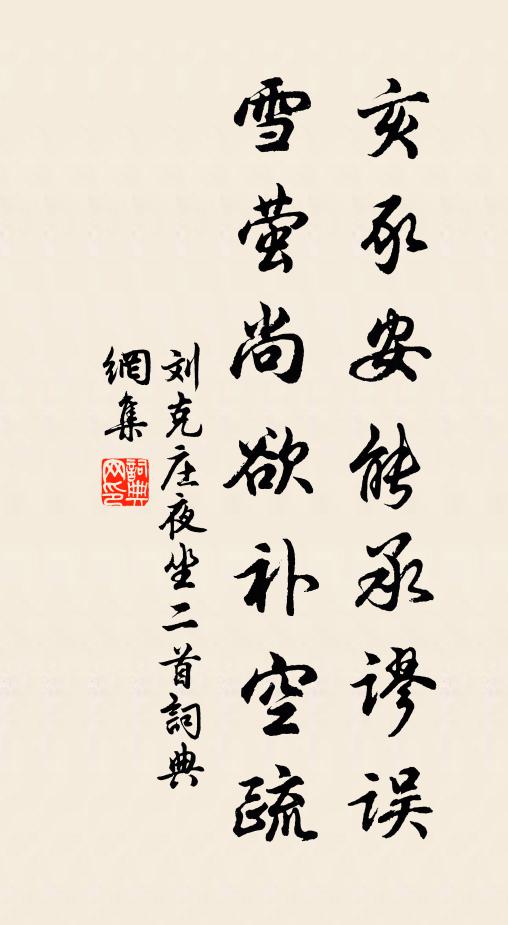 亥豕安能承谬误
雪萤尚欲补空疏
刘克庄夜坐二首詞典
網集
詞典
网印